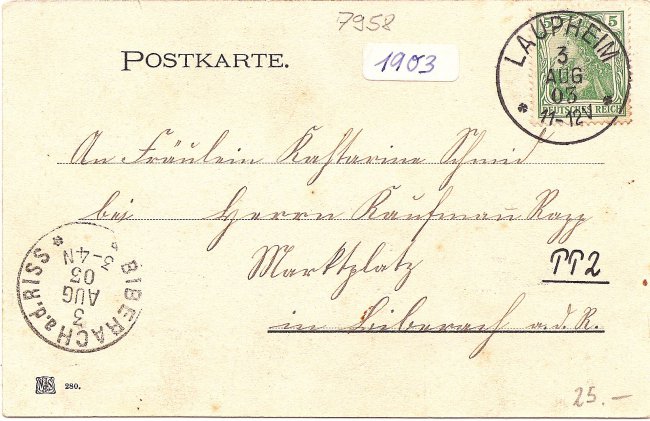 7958
POSTKARTE.
1903
5 5
LAUPHEIM
3
AUG
03
11-12V
DEUTSCHES REICH
An Fräulein Kahtarine Schmid
bei Herrn Kaufmann Rapp
Marktplatz
PP2
in Biberach a.d.R.
BIBERACH a.d. RISS
3
AUG
03
3-4N
280.
25.-